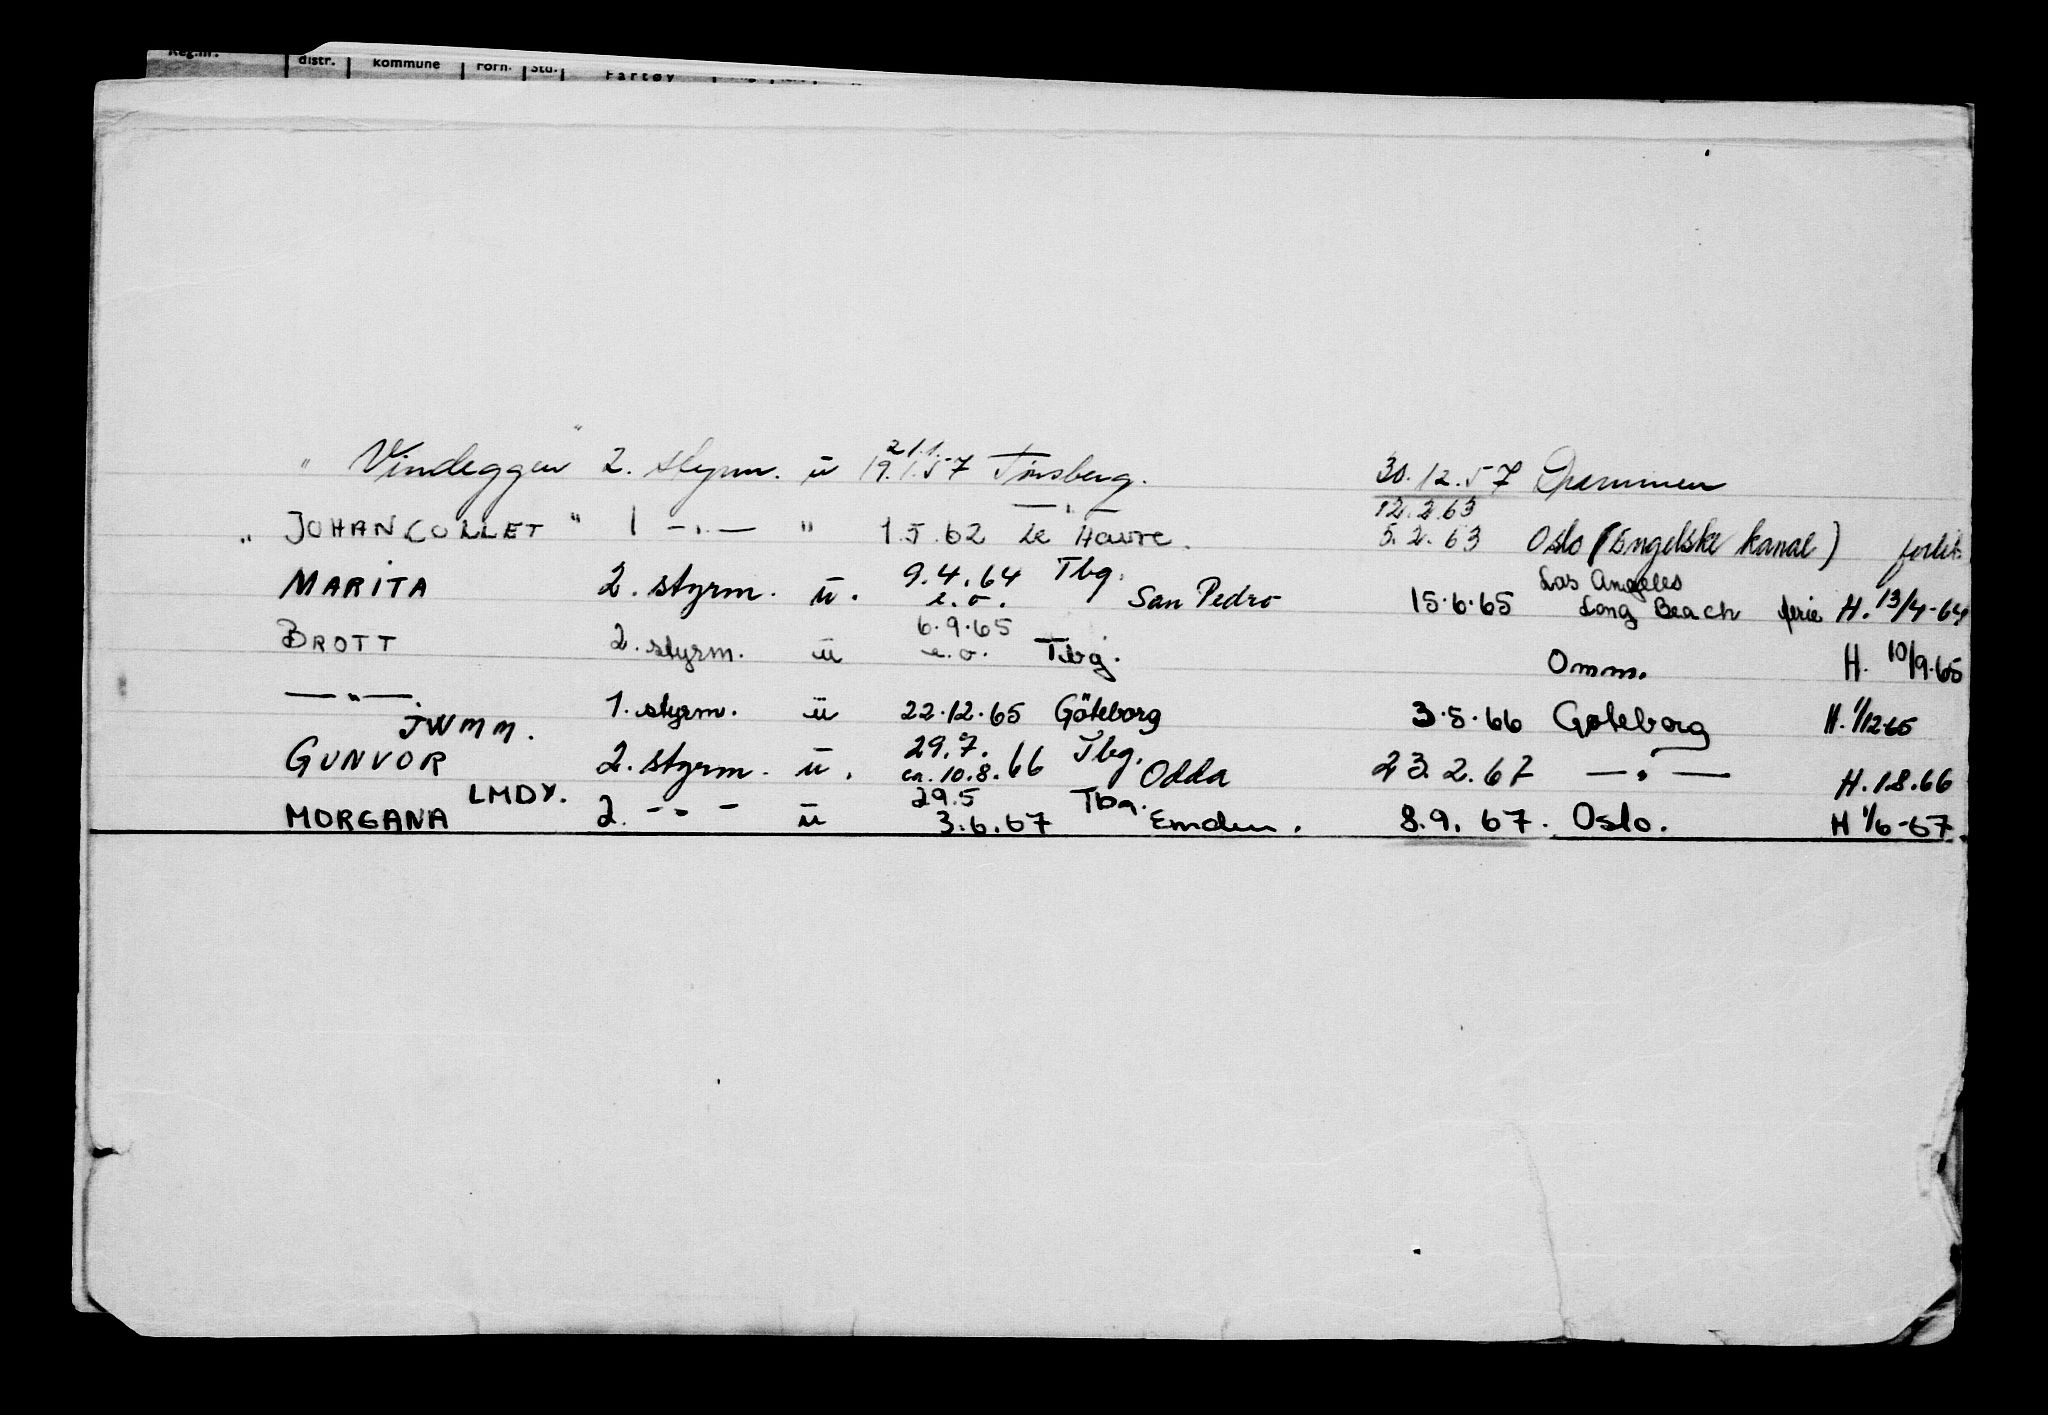 Reg.nr. distr. kommune Forn. Std. Fartøy
21.1.
" Vindeggen " 2. styrm. u 19.1.57 Tønsberg. 30.12.57 Drammen
—"— 12.2.63
" JOHAN COLLET " 1 —"— " 1.5.62 Le Havre. 5.2.63 Oslo (Engelske kanal)
9.4.64 Tbg. Los Angeles
MARITA 2. styrm. u. e.o. San Pedro 15.6.65 Long Beach ferie H. 13/4-64
6.9.65
BROTT 2. styrm. u e.o. Tbg. Omm. H. 10/9.65
—"— 1. styrm. u 22.12.65 Göteborg 3.5.66 Gøteborg H. 1/12 65
JWMM. 29.7. Tbg.
GUNVOR 2. styrm. u. ca. 10.8.66 Odda 23.2.67 —"— H. 1.8.66
LMDY. 29.5 Tbg.
MORGANA 2. —"— u 3.6.67 Emden. 8.9.67. Oslo. H 1/6-67.